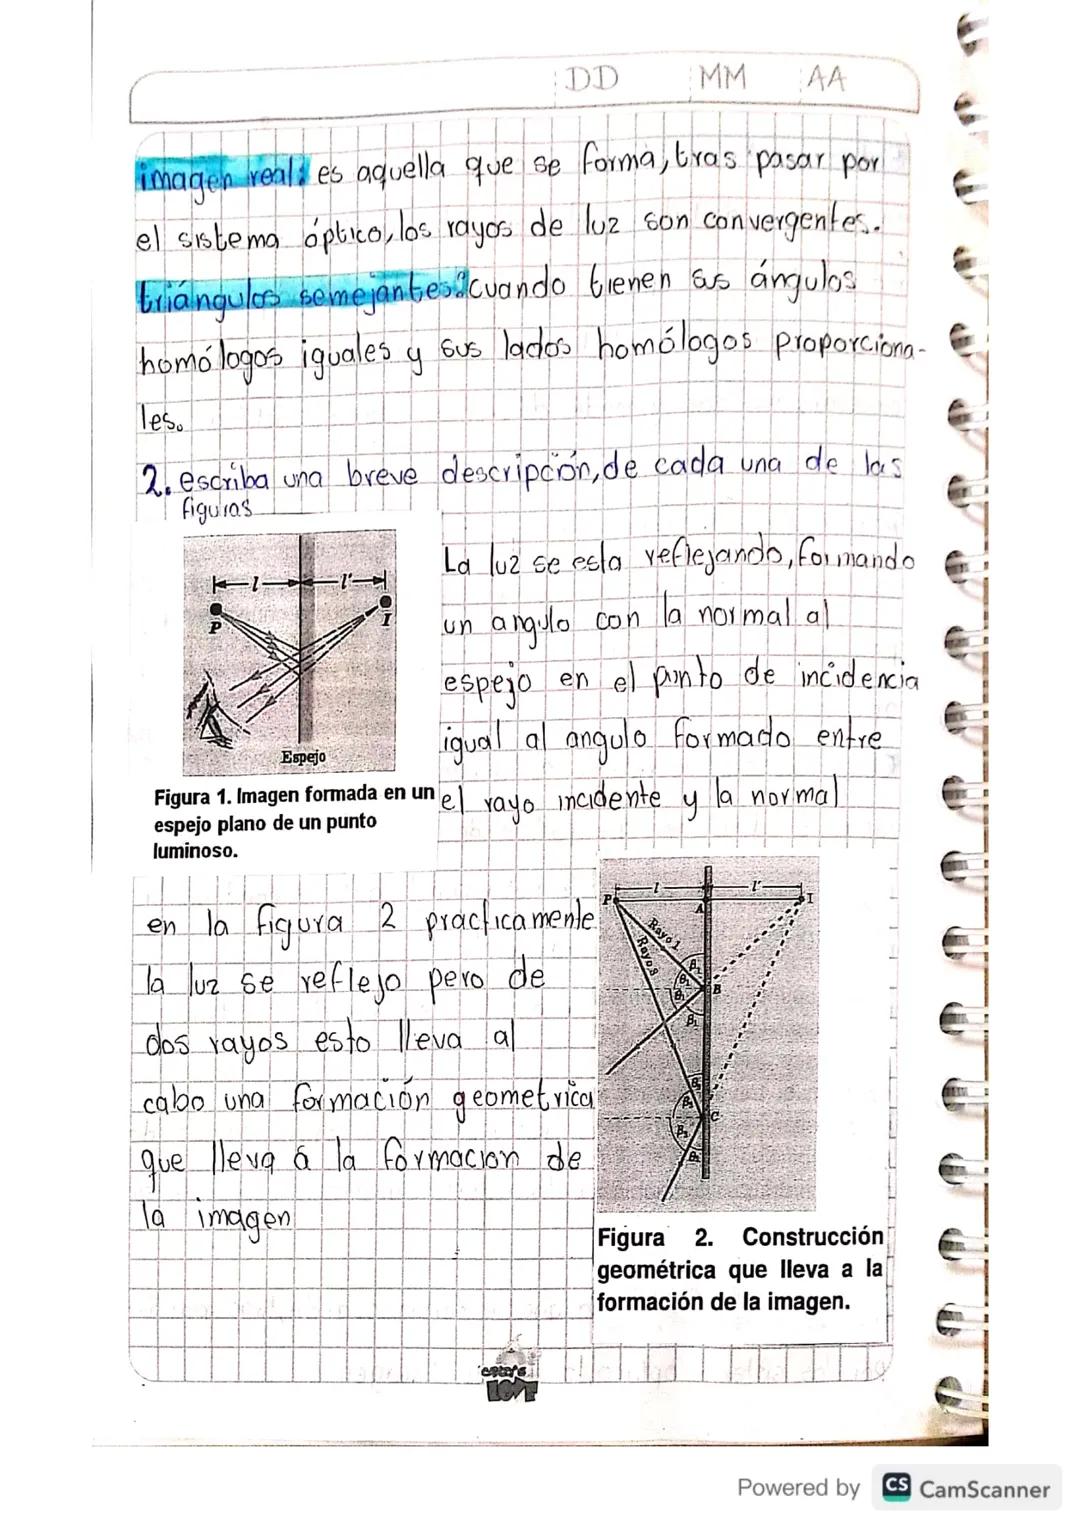 DD MM AA
imagen real: es aquella que se forma, tras pasar por
el sistema óptico, los rayos de luz son convergentes.
triángulos semejantes: cuando tienen sus ángulos
homólogos iguales y sus lados homólogos proporciona-
les.
2. escriba una breve descripción, de cada una de las
figuras
l l'
P I
Espejo
Figura 1. Imagen formada en un
espejo plano de un punto
luminoso.
La luz se esta reflejando, formando
un angulo con la normal al
espejo en el punto de incidencia
igual al angulo formado entre
el rayo incidente y la normal
en la figura 2 practicamente
la luz se reflejo pero de
dos rayos esto lleva al
cabo una formación geometrica
que lleva a la formacion de
la imagen
l l'
P A I
Rayo 1
B
C
Figura 2. Construcción
geométrica que lleva a la
formación de la imagen.
LOVE
Powered by CS CamScanner